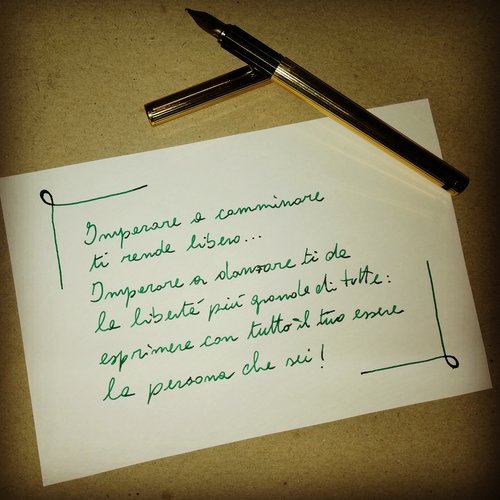 Imparare a camminare
ti rende libero...
Imparare a danzare ti da
la libertà più grande di tutte:
esprimere con tutto il tuo essere
la persona che sei!